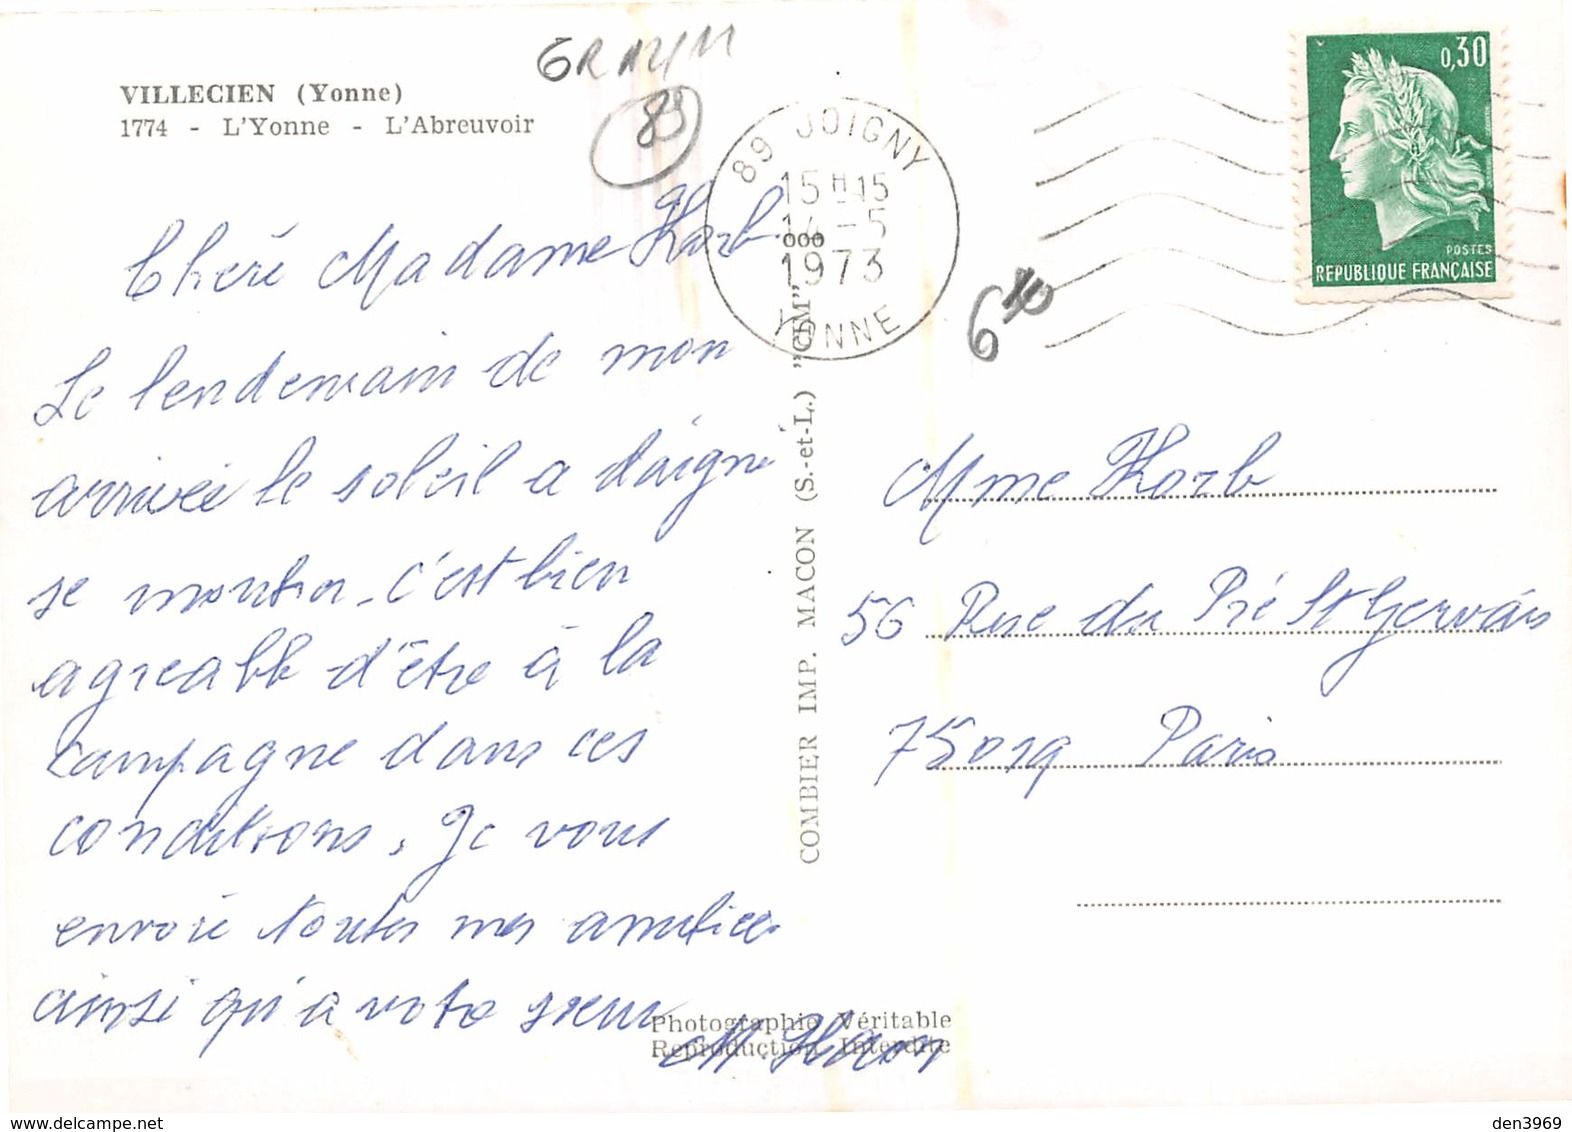 VILLECIEN (Yonne)
1774 - L'Yonne - L'Abreuvoir
89
89 JOIGNY
15H15
14-5
1973
YONNE
0,30
POSTES
REPUBLIQUE FRANÇAISE
Chère Madame Korb.
Le lendemain de mon
arrivée le soleil a daigné
se montrer - c'est bien
agréable d'être à la
campagne dans ces
conditions. Je vous
envoie toutes mes amitiés
ainsi qu'à votre sœur
M.
COMBIER IMP. MACON (S.-et-L.) "CIM"
Mme Korb
56 Rue du Pré St Gervais
75019 Paris
Photographie Véritable
Reproduction Interdite
den3969